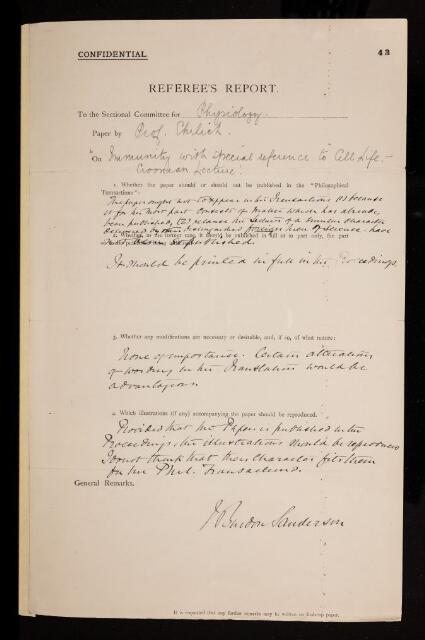 CONFIDENTIAL
43
REFEREE'S REPORT.
To the Sectional Committee for Physiology.
Paper by Prof. Ehrlich.
"On Immunity with special reference to Cell Life.—
Croonian Lecture.
1. Whether the paper should or should not be published in the "Philosophical
Transactions":—
The paper ought not to appear in the Transactions (1) because
it for the most part consists of matter which has already
been published, (2) because the lectures of a similar character
delivered by distinguished foreign Men of Science have
not been so published.
It should be printed in full in the Proceedings.
3. Whether any modifications are necessary or desirable, and, if so, of what nature:
None of importance. Certain alterations
of wording in the translation would be
advantageous.
4. Which illustrations (if any) accompanying the paper should be reproduced.
Provided that the Paper is published in the
Proceedings, the illustrations should be reproduced
I do not think that their character fits them
for the Phil. Transactions.
General Remarks.
J Burdon Sanderson
It is requested that any further remarks may be written on foolscap paper.